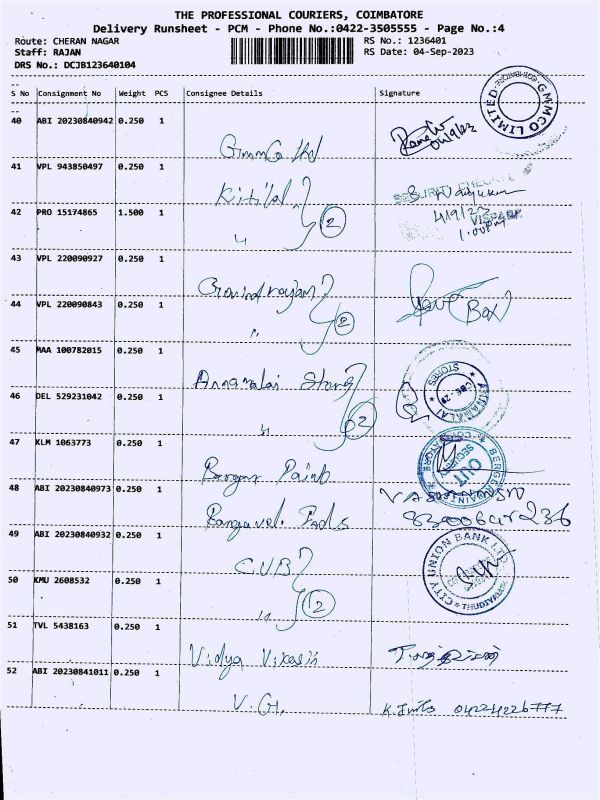 THE PROFESSIONAL COURIERS, COIMBATORE
Delivery Runsheet - PCM - Phone No.:0422-3505555 - Page No.:4
Route: CHERAN NAGAR
RS No.: 1236401
Staff: RAJAN
RS Date: 04-Sep-2023
DRS No.: DCJB123640104
S No Consignment No Weight PCS Consignee Details Signature
40 ABI 20230840942 0.250 1
GMMCO LIMITED
COIMBATORE
04/9/23
GmmCo Ltd
41 VPL 943850497 0.250 1
Kitilal
4/9/23
1.00pm
42 PRO 15174865 1.500 1
2
〃
43 VPL 220090927 0.250 1
Govindrajan
Box
44 VPL 220090843 0.250 1
2
〃
45 MAA 100782015 0.250 1
Annamalai Stores
ANNAMALAI STORES
CBE-29
46 DEL 529231042 0.250 1
2
〃
47 KLM 1063773 0.250 1
Berger Paints
SECURITY
OUT
48 ABI 20230840973 0.250 1
Rangavel Pads
49 ABI 20230840932 0.250 1
CUB
CITY UNION BANK LTD.
THUDIYALUR
50 KMU 2608532 0.250 1
2
〃
51 TVL 5438163 0.250 1
Vidya Vikasii
52 ABI 20230841011 0.250 1
V.G.
04224226777